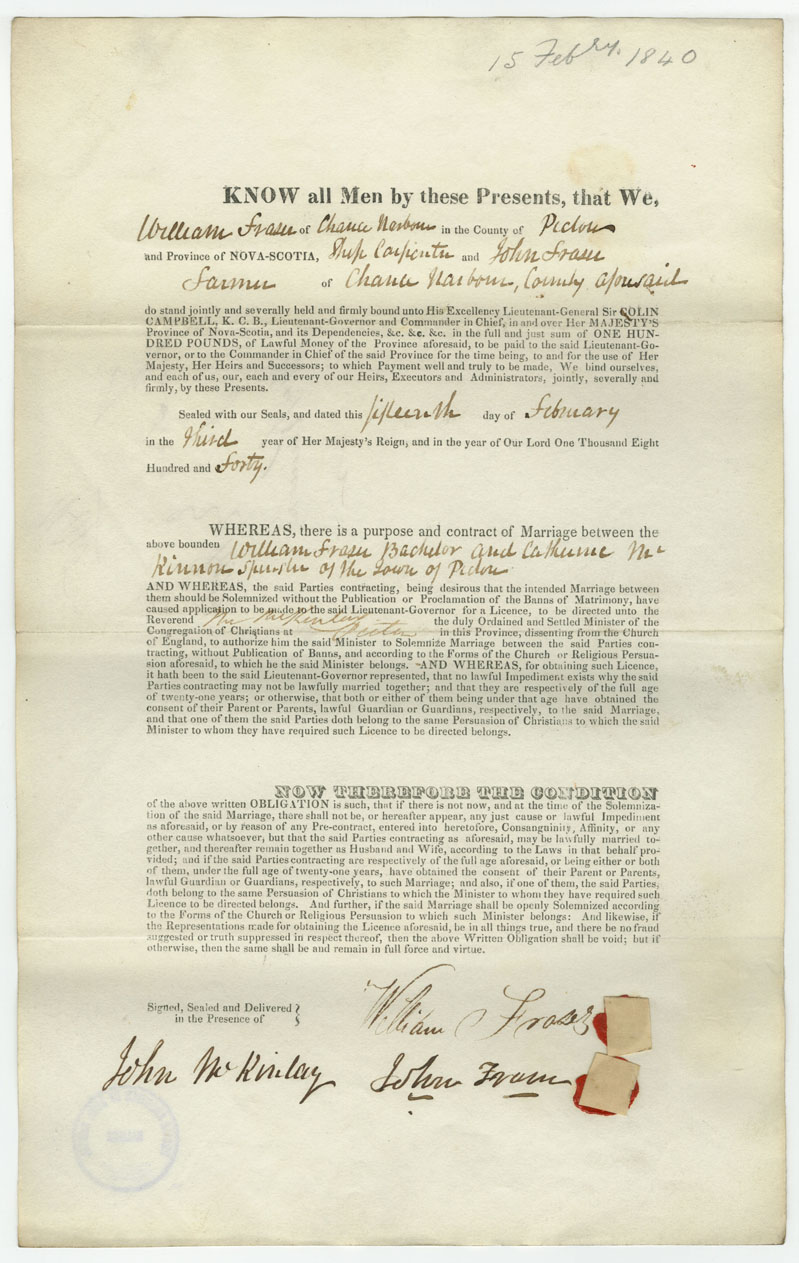 15 Febry. 1840
KNOW all Men by these Presents, that We,
William Fraser of Chance Harbour in the County of Pictou
and Province of NOVA-SCOTIA, Ship Carpenter and John Fraser
Farmer of Chance Harbour, County aforesaid
do stand jointly and severally held and firmly bound unto His Excellency Lieutenant-General Sir COLIN
CAMPBELL, K. C. B., Lieutenant-Governor and Commander in Chief, in and over Her MAJESTY'S
Province of Nova-Scotia, and its Dependencies, &c. &c. &c. in the full and just sum of ONE HUN-
DRED POUNDS, of Lawful Money of the Province aforesaid, to be paid to the said Lieutenant-Go-
vernor, or to the Commander in Chief of the said Province for the time being, to and for the use of Her
Majesty, Her Heirs and Successors; to which Payment well and truly to be made, We bind ourselves,
and each of us, our, each and every of our Heirs, Executors and Administrators, jointly, severally and
firmly, by these Presents.
Sealed with our Seals, and dated this fifteenth day of February
in the Third year of Her Majesty's Reign, and in the year of Our Lord One Thousand Eight
Hundred and Forty.
WHEREAS, there is a purpose and contract of Marriage between the
above bounden William Fraser Bachelor and Catherine Mc
Kinnon Spinster of the Town of Pictou
AND WHEREAS, the said Parties contracting, being desirous that the intended Marriage between
them should be Solemnized without the Publication or Proclamation of the Banns of Matrimony, have
caused application to be made to the said Lieutenant-Governor for a Licence, to be directed unto the
Reverend the duly Ordained and Settled Minister of the
Congregation of Christians at Pictou in this Province, dissenting from the Church
of England, to authorize him the said Minister to Solemnize Marriage between the said Parties con-
tracting, without Publication of Banns, and according to the Forms of the Church or Religious Persua-
sion aforesaid, to which he the said Minister belongs. AND WHEREAS, for obtaining such Licence,
it hath been to the said Lieutenant-Governor represented, that no lawful Impediment exists why the said
Parties contracting may not be lawfully married together; and that they are respectively of the full age
of twenty-one years; or otherwise, that both or either of them being under that age have obtained the
consent of their Parent or Parents, lawful Guardian or Guardians, respectively, to the said Marriage,
and that one of them the said Parties doth belong to the same Persuasion of Christians to which the said
Minister to whom they have required such Licence to be directed belongs.
NOW THEREFORE THE CONDITION
of the above written OBLIGATION is such, that if there is not now, and at the time of the Solemniza-
tion of the said Marriage, there shall not be, or hereafter appear, any just cause or lawful Impediment
as aforesaid, or by reason of any Pre-contract, entered into heretofore, Consanguinity, Affinity, or any
other cause whatsoever, but that the said Parties contracting as aforesaid, may be lawfully married to-
gether, and thereafter remain together as Husband and Wife, according to the Laws in that behalf pro-
vided; and if the said Parties contracting are respectively of the full age aforesaid, or being either or both
of them, under the full age of twenty-one years, have obtained the consent of their Parent or Parents,
lawful Guardian or Guardians, respectively, to such Marriage; and also, if one of them, the said Parties,
doth belong to the same Persuasion of Christians to which the Minister to whom they have required such
Licence to be directed belongs. And further, if the said Marriage shall be openly Solemnized according
to the Forms of the Church or Religious Persuasion to which such Minister belongs: And likewise, if
the Representations made for obtaining the Licence aforesaid, be in all things true, and there be no fraud
suggested or truth suppressed in respect thereof, then the above Written Obligation shall be void; but if
otherwise, then the same shall be and remain in full force and virtue.
Signed, Sealed and Delivered
in the Presence of
William Fraser
John McKinlay John Fraser